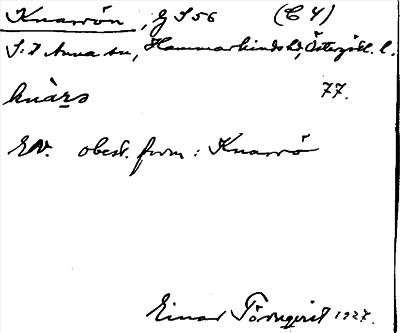 Knarrön, G S 56 (C 4)
S:t Anna sn, Hammarkinds hd, Östergötl. l.
knàrs 77.
EN. obest. form: Knarrö
Einar Törnqvist 1927.